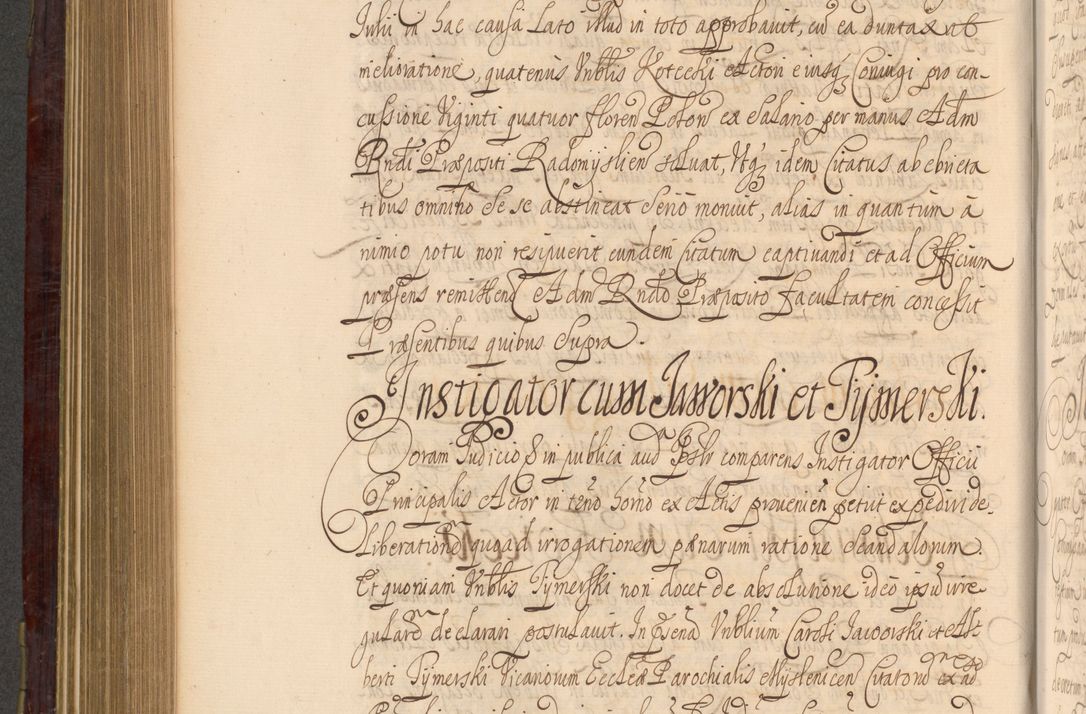 Julii in hac causa Lato illud in toto approbavit, cũ ea duntaxat
melioratione, quatenus Vnblis Kotecki Actori eiusq; Coniugi pro con-
cussione Viginti quatuor floren Polon ex Salario per manus Adm
Rndi Præpositi Radomyslien solvat, Utq; idem Citatus ab ebrieta
tibus omnino se se abstineat serio monuit, alias in quantum à
nimio potu non resipuerit eundem Citatum captivandi et ad Officium
præsens remittend Adm Rndo Præposito facultatem concessit
Præsentibus quibus supra.
Instigator cum Jaworski et Tymerski.
Coram Judicio & in publica aud Pstr comparens Instigator Officii
Principalis Actor in teño horño ex Actis provenień petiit expediri de-
Liberatione quoad irrogationem pænarum ratione scandalorum.
Et quoniam Vnblis Tymerski non docet de absolutione ideo ipsũ irre
gularẽ declarari postulavit. In psena Vnblium Caroli Jaworski et Al-
berti Tymerski Vicariorum Ecclæ Parochialis Myslenicen Citatorũ